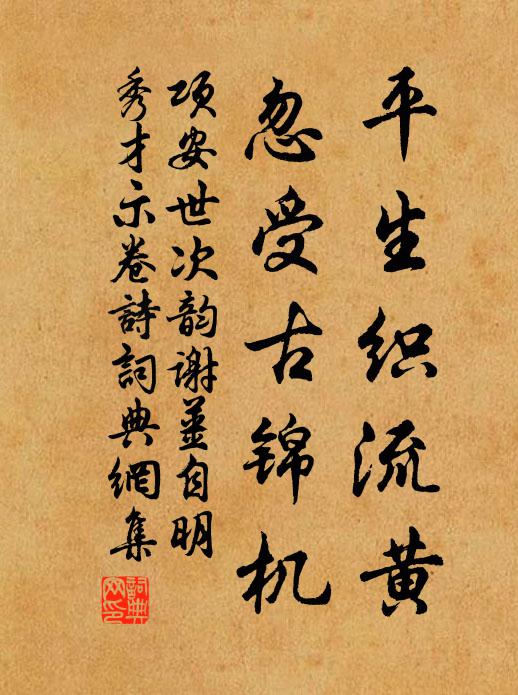 平生织流黄
忽受古锦机
项安世次韵谢姜自明
秀才示卷詩詞典網集
詞典
网印